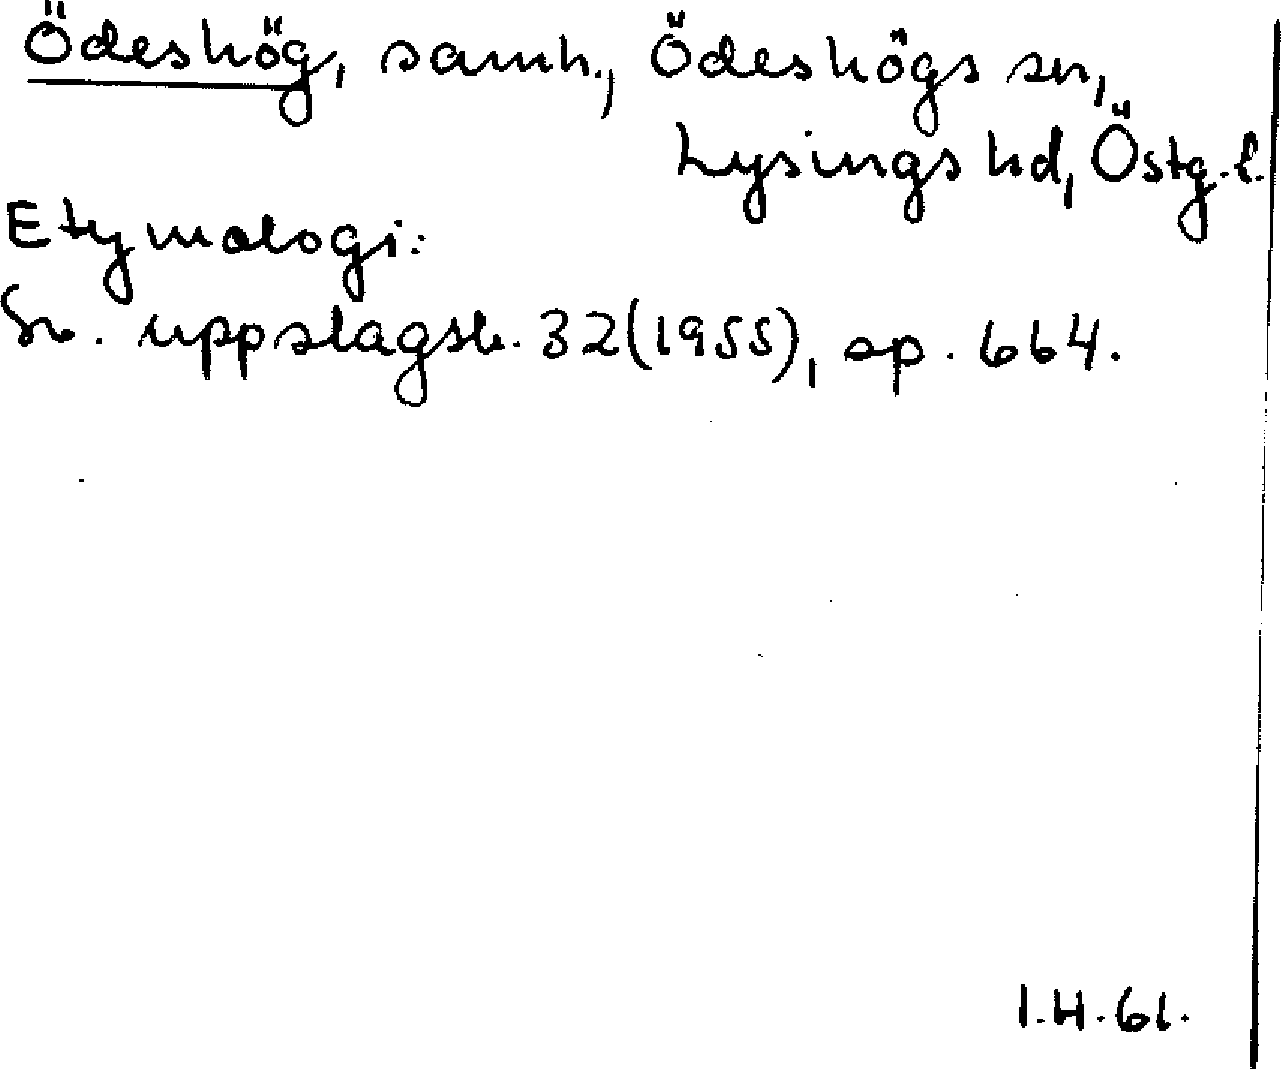 Ödeshög, samh., Ödeshögs sn,
Lysings hd, Östg.l.
Etymologi:
Sv. uppslagsb. 32(1955), sp. 664.
I.H.61.